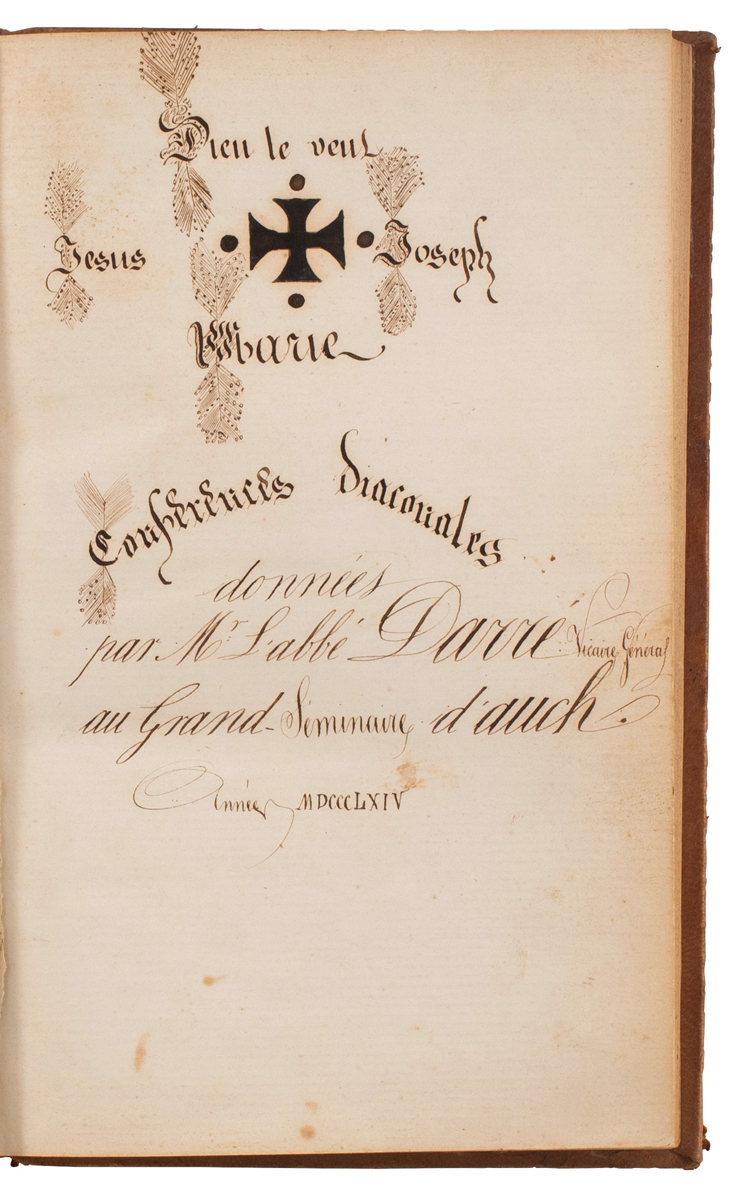 Dieu le veut
Jesus
Joseph
Marie
Conférences diaconales
données
par Mr L'abbé Darré Vicaire Général
au Grand-Séminaire d'auch.
Année MDCCCLXIV